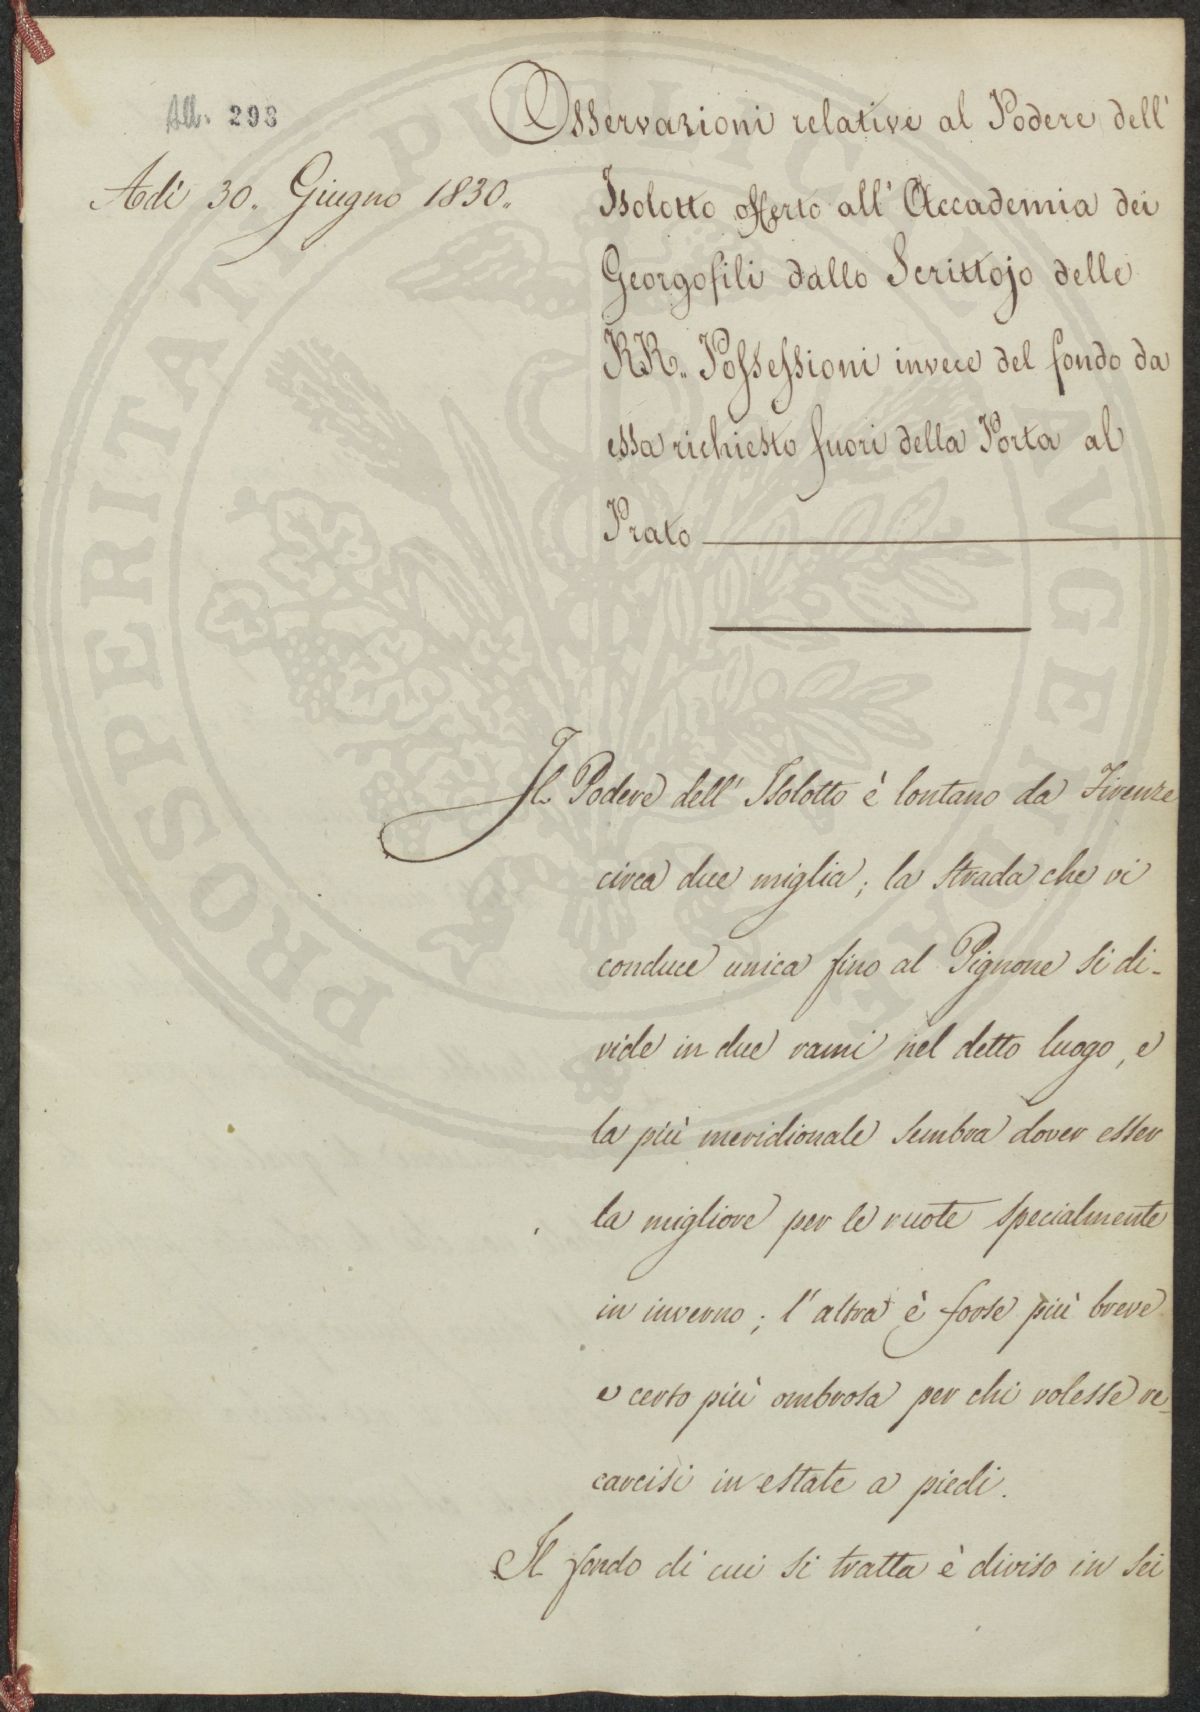 All. 298
Adì 30. Giugno 1830.
Osservazioni relative al Podere dell'
Isolotto offerto all' Accademia dei
Georgofili dallo Scrittojo delle
RR. Possessioni invece del fondo da
essa richiesto fuori della Porta al
Prato
Il Podere dell' Isolotto è lontano da Firenze
circa due miglia; la strada che vi
conduce unica fino al Pignone si di-
vide in due rami nel detto luogo, e
la più meridionale sembra dover esser
la migliore per le ruote specialmente
in inverno; l'altra è forse più breve
e certo più ombrosa per chi volesse re-
carcisi in estate a piedi.
Il fondo di cui si tratta è diviso in sei
PROSPERITATI PUBLICAE AUGENDAE